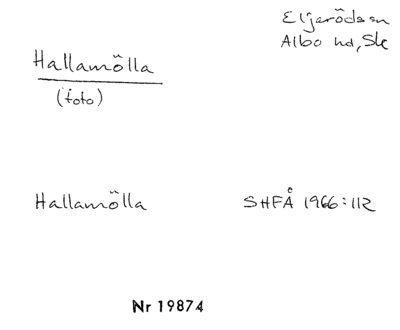 Eljarödssn
Albo hd, Sk
Hallamölla
(foto)
Hallamölla SHFÅ 1966:112
Nr 19874